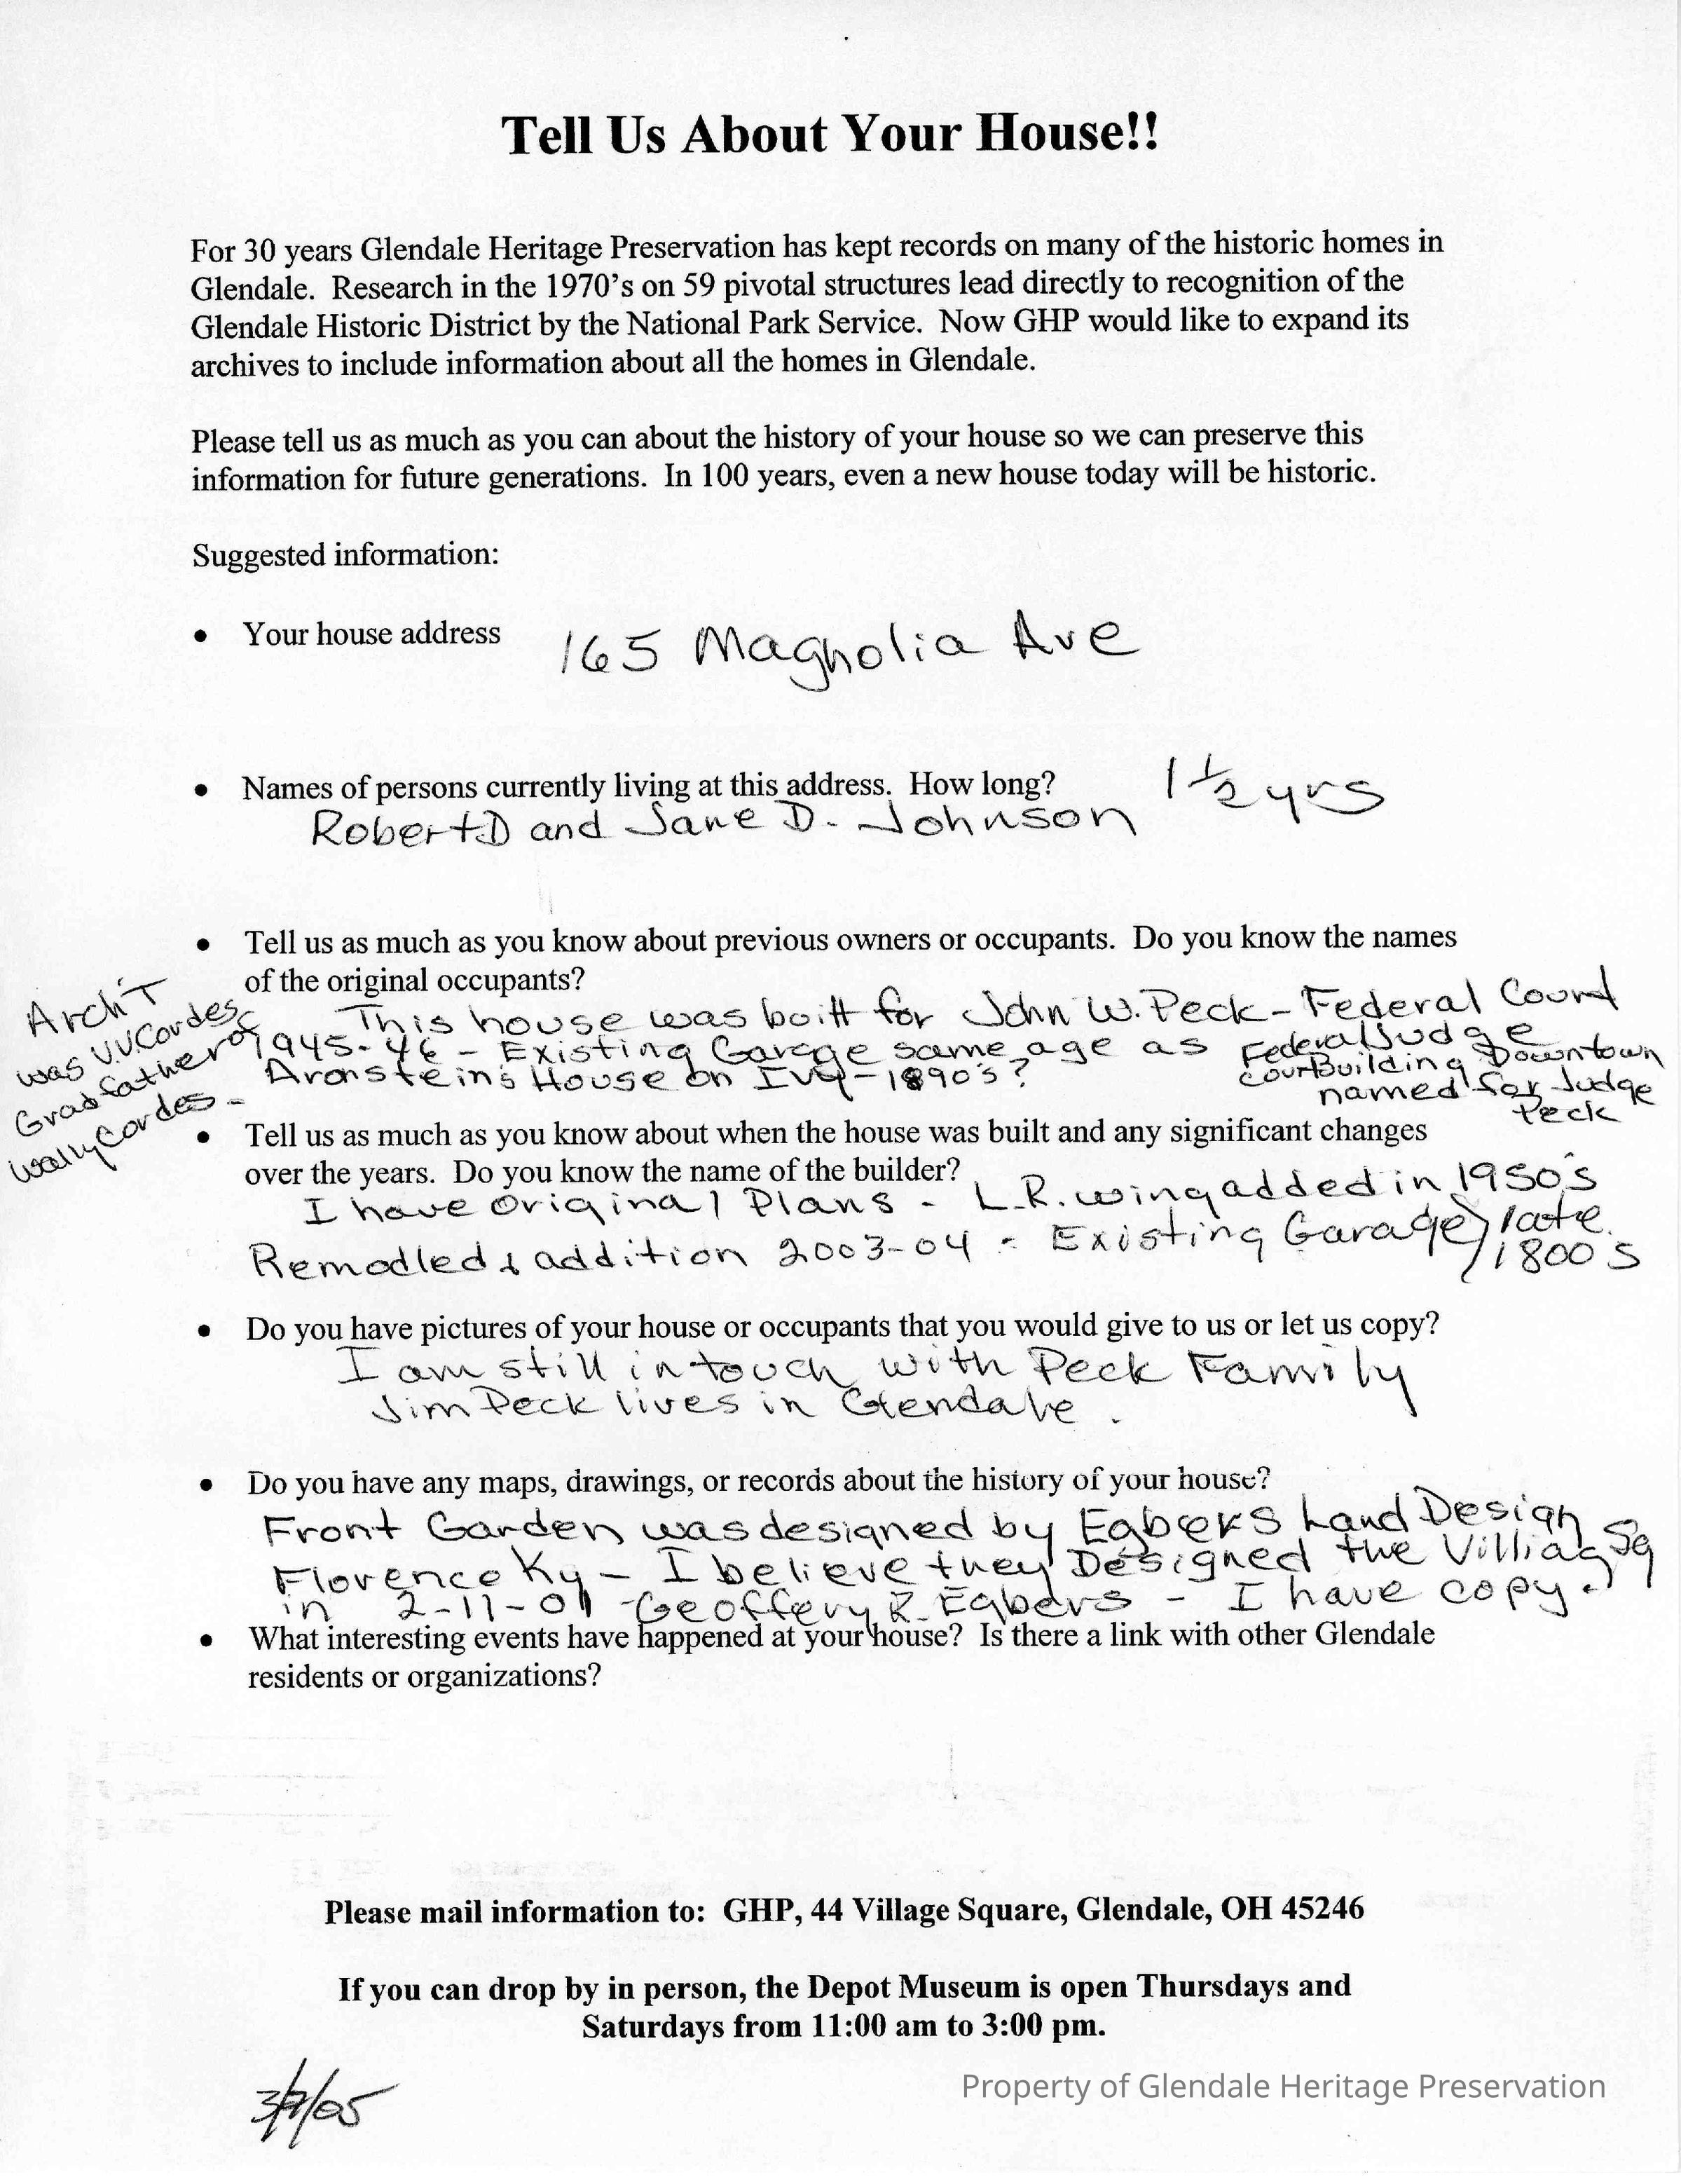 Tell Us About Your House!!
For 30 years Glendale Heritage Preservation has kept records on many of the historic homes in
Glendale. Research in the 1970's on 59 pivotal structures lead directly to recognition of the
Glendale Historic District by the National Park Service. Now GHP would like to expand its
archives to include information about all the homes in Glendale.
Please tell us as much as you can about the history of your house so we can preserve this
information for future generations. In 100 years, even a new house today will be historic.
Suggested information:
• Your house address 165 Magnolia Ave
• Names of persons currently living at this address. How long? 1 1/2 yrs
Robert D and Jane D. Johnson
• Tell us as much as you know about previous owners or occupants. Do you know the names
of the original occupants?
This house was boitt for John W. Peck - Federal Court
1945-46 - Existing Garage same age as
Aronstein's House on Ivy - 1890's?
Federal Judge
Court Building Downtown
named for Judge
Peck
Archi't
was V.V. Cordes
Gradfather of
Wally Cordes -
• Tell us as much as you know about when the house was built and any significant changes
over the years. Do you know the name of the builder?
I have original Plans - L.R. wing added in 1950's
Remodled & addition 2003-04 - Existing Garage) late
1800's
• Do you have pictures of your house or occupants that you would give to us or let us copy?
I am still in touch with Peck Family
Jim Peck lives in Glendale.
• Do you have any maps, drawings, or records about the history of your house?
Front Garden was designed by Egbers Land Design
Florence Ky - I believe they Designed the Villiag Sq
in 2-11-01 - Geoffery R. Egbers - I have copy.
• What interesting events have happened at your house? Is there a link with other Glendale
residents or organizations?
Please mail information to: GHP, 44 Village Square, Glendale, OH 45246
If you can drop by in person, the Depot Museum is open Thursdays and
Saturdays from 11:00 am to 3:00 pm.
Property of Glendale Heritage Preservation